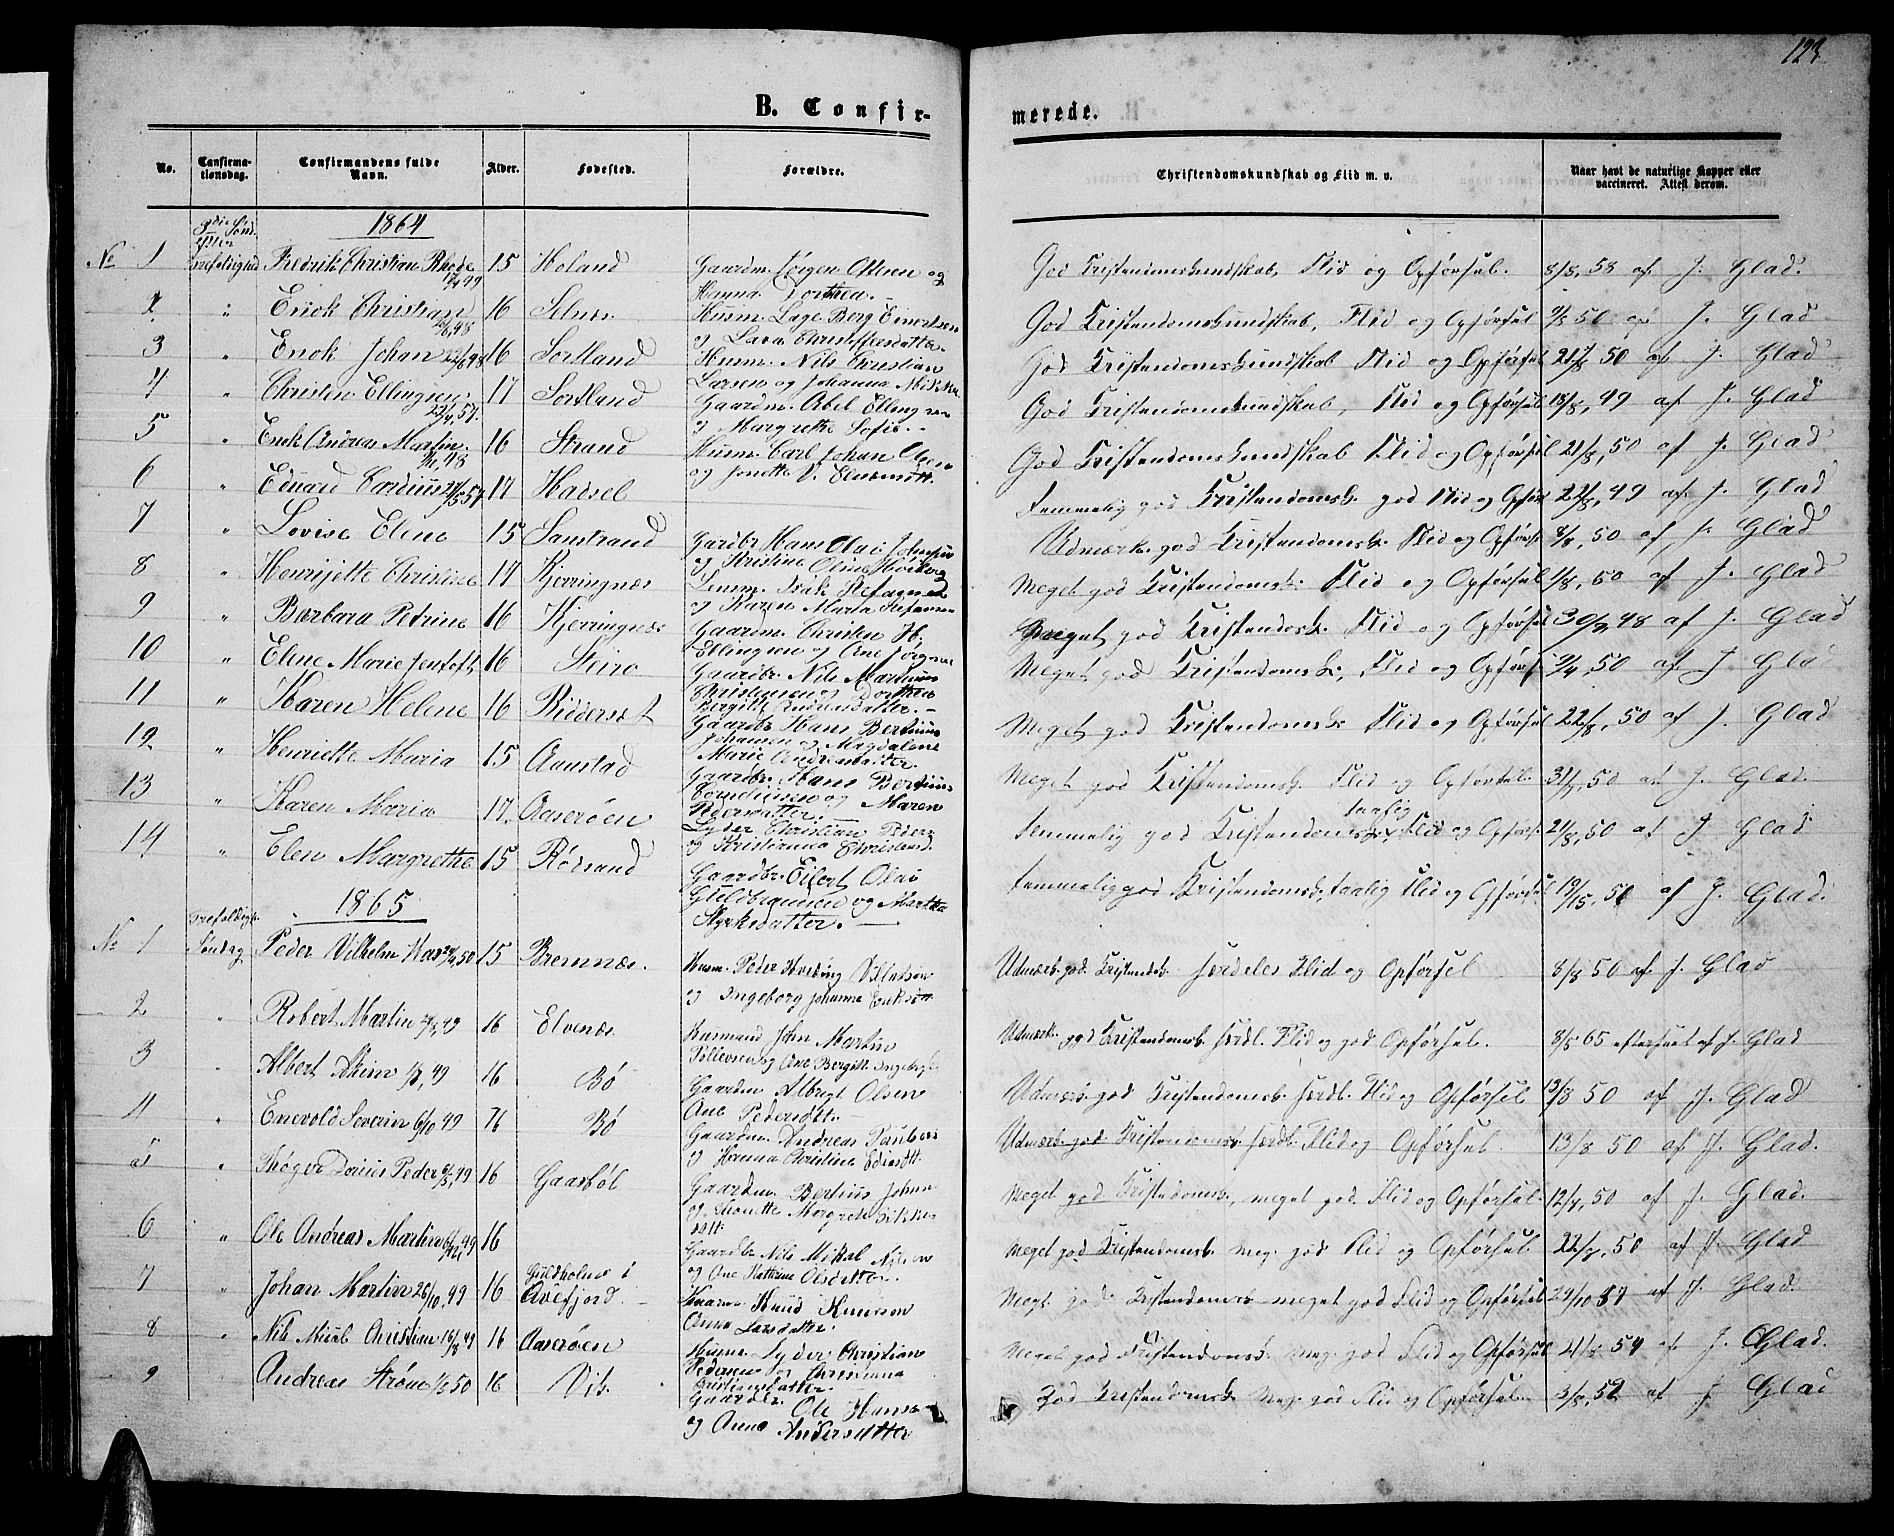 123
B. Confir-
merede.
No.
Confirma-
tionsdag.
Confirmandens fulde
Navn.
Alder.
Fødested.
Forældre.
Christendomskundskab og Flid m. v.
Naar havt de naturlige Kopper eller
vaccineret. Attest derom.
1864
3die Sønd.
efter
No 1 Trefoldighed Fredrik Christian Rhode 15 Holand Gaardm. Jørgen Olsen og
Hanna Dorthea. God Kristendomskundskab, Flid og Opførsel. 8/8, 58 af J. Glad.
2 " Erick Christian 16 Selnes Husm. Lage Berg Enertsen
og Lava Christoffersdatter. God Kristendomskundskab, Flid og Opførsel 50 af J. Glad
3 " Enok Johan 16 Sortland Husm. Nils Christian
Larsen og Johanna God Kristendomskundskab Flid og Opførsel 50 af J. Glad
4 " Christen Ellingsen 17 Sortland Gaardm. Abel Ellingsen
og Margrethe Sofie. God Kristendomskundskab, Flid og Opførsel 18/8, 49 af J. Glad
5 " Erick Andreas Martin 16 Strand Husm. Carl Johan Olsen
og Jonette V. God Kristendomskundskab Flid og Opførsel 21/8, 50 af J. Glad
6 " Eduard Cordius 17 Hadsel temmelig god Kristendomsk. god Flid og Opførs 22/8, 49 af J. Glad
7 " Lovise Elene 15 Sandstrand Gardbr. Hans Olai Johnsen
og Kristine Udmærk. god Kristendomsk. Flid og Opførs 8/8, 50 af J. Glad
8 " Henrijette Christine 17 Kjerringnæs Lensm. Isak Stefansen
og Karen Maria Stefansen Meget god Kristendomsk. Flid og Opførsel 1/8, 50 af J. Glad
9 " Berbara Petrine 16 Kjerringnæs Gaardm. Christen H.
Ellingsen og Ane Jørgine Meget god Kristendomsk. Flid og Opførsel 48 af J. Glad
10 " Elene Marie Jentoft 16 Steiro Gaardbr. Nils Martinus
Christiansen og Dorthea
Birgitte Andreasdatter. Meget god Kristendomsk., Flid og Opførs 50 af J. Glad
11 " Karen Helene 16 Biddersæt Gaardbr. Hans Bertinus
Johansen og Magdalene
Marie Andreasdatter. Meget god Kristendomsk. Flid og Opførsel 22/8, 50 af J. Glad
12 " Henriette Maria 15 Aanstad Gaardbr. Hans Bertinus
Corneliusen og Maren
Pedersdatter. Meget god Kristendomsk. Flid og Opførsel. 50 af J. Glad.
13 " Karen Maria 17. Aaserøen Lyder Christian Peders
og Kristianna Christensd. temmelig god Kristendomsk., taalig Flid og Opførs. 21/8, 50 af J. Glad
14 " Elen Margrethe 15 Rødsand Gaardbr. Eilert Olai
Guldbransen og Martha
datter. temmelig god Kristendomsk., taalig Flid og Opførsel 50 af J. Glad.
1865
Trefoldigh.
No 1 Søndag Peder Vilhelm Kar 24/4 50 15 Bremnæs. Husm. Peder Hveding Vilhelmsen
og Ingeborg Johanna Eriksdtt. Udmærk. god Kristendsk. særdeles Flid og Opførsel 8/8 50 af J. Glad
2 " Robert Martin 49 16 Elvenæs Husmand John Martin
Tollevsen og Ane Bergitte Udmærk. god Kristendomsk. særdl. Flid og god Opførsel. 8/5 65 efterseet af J. Glad
3 " Albert Akim 49 16 Bø Gaardm. Albrigt Olsen
Ane Pedersdtt. Udmærk. god Kristendomsk. særdl. Flid og Opførsel 13/8 50 af J. Glad
4 " Enevold Severin 6/10 49 16 Bø Gaardm. Andreas
og Hanna Christine Udmærk. god Kristendomsk. særdl. Flid og Opførsel. 13/8 50 af J. Glad.
5 " Thøger Dorius Peder 49 16 Gaasbøl Gaardm. Bertius Johan
og Jonette Margrete
dtt. Meget god Kristendomsk., meget god Flid og Opførsel. 50 af J. Glad.
6 " Ole Andreas Martin 49 16 Gaardbr. Nils Mikal Nilsen
og Ane Kathrine Olsdatter. meget god Kristendomsk. meg. god Flid og Opførsel. 50 af J. Glad
7 " Johan Martin 26/10, 49 16 Guldholme i
Øxefjord Husm. Knud Knudsen
Anna Larsdatter. Megt. god Kristendomsk. meget god Flid og Opførsel af J. Glad.
8 " Nils Micel Christian 18/8 49 16 Aaserøen Husm. Lyder Christian
Pedersen og Christianna
Kristiansdatter. Meget god Kristendomsk. Meg. god Flid og Opførsel 21/8 54 af J. Glad.
9 " Andreas Strøm 50 16 Vik. Gaardbr. Ole Hansen
og Anna Andersdatter god Kristendomsk. Meg. god Flid og Opførsel. 52 af J. Glad